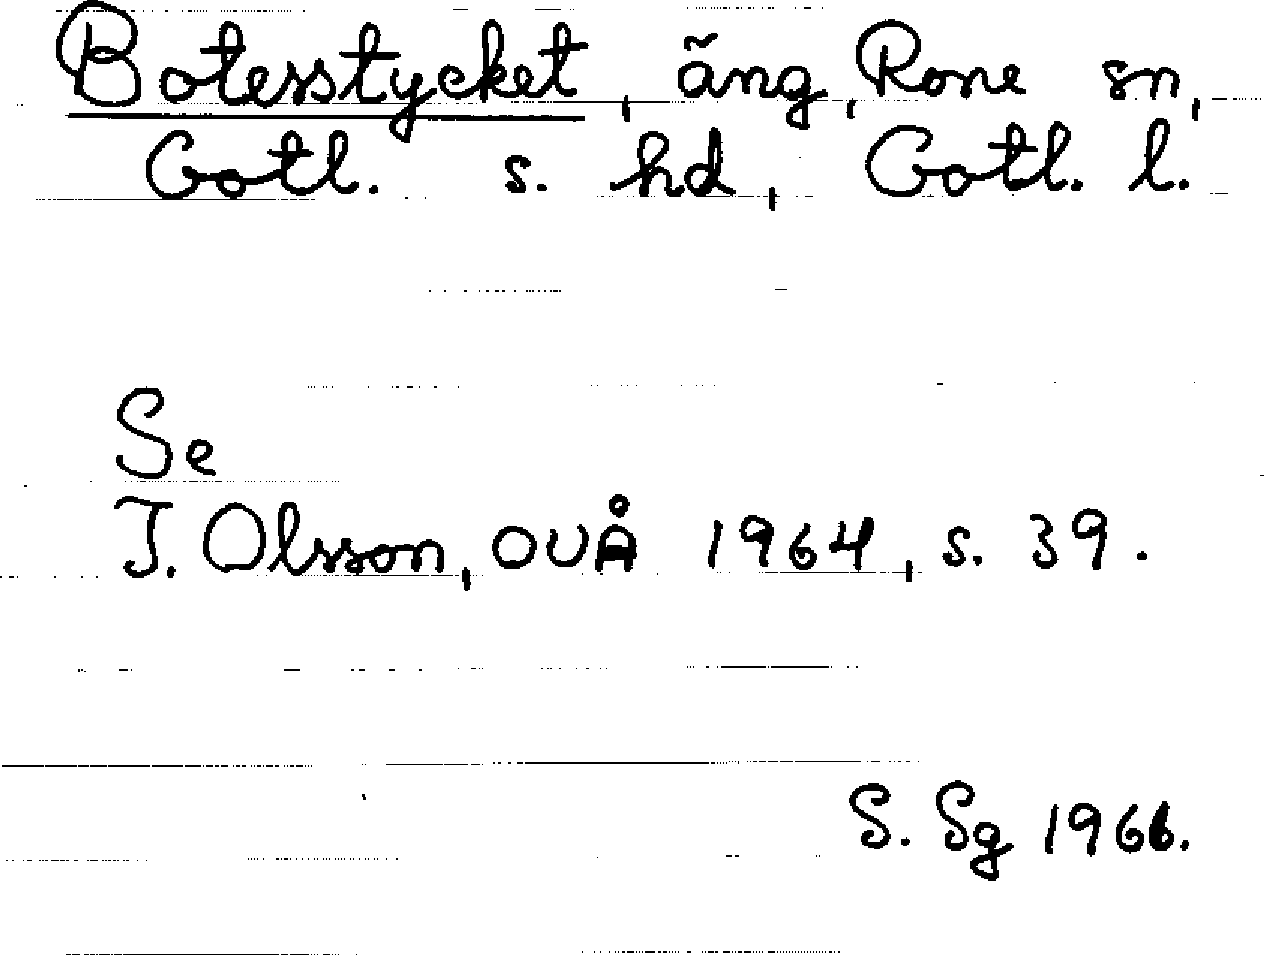 Botesstycket, äng, Rone sn,
Gotl. s. hd, Gotl. l.
Se
I. Olsson, OUÅ 1964, s. 39.
S. Sg 1966.